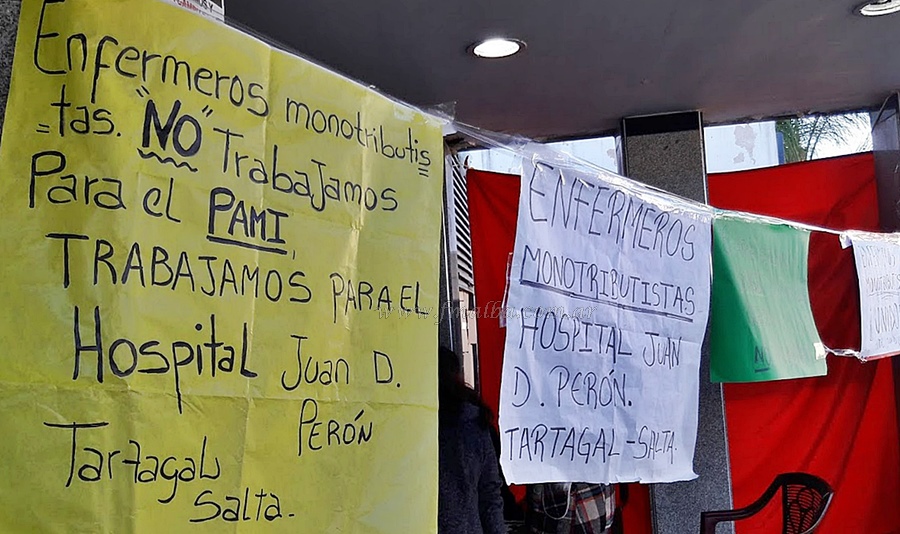 Enfermeros monotributis
=tas. "NO" TrabaJamos
Para el PAMI,
TRABAJAMOS PARA EL
Hospital Juan D.
PERÓN
Tartagal
Salta.
ENFERMEROS
MONOTRIBUTISTAS
HOSPITAL JUAN
D. PERÓN.
TARTAGAL-SALTA.
www.fmalba.com.ar